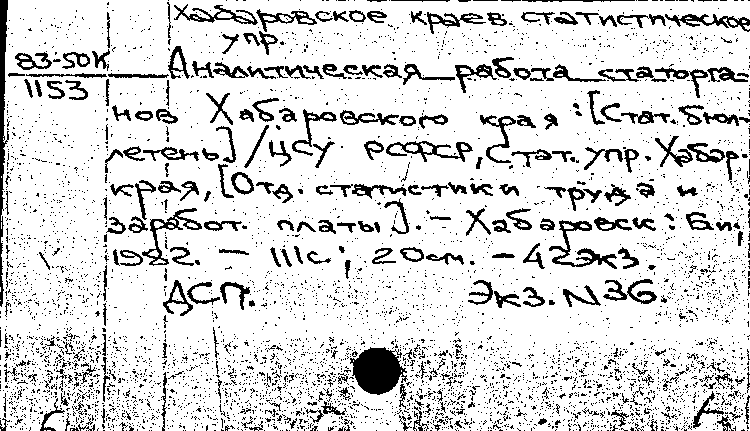 Хабаровское краев. статистическое
упр.
83-50К
1153
Аналитическая работа статорга-
нов Хабаровского края : [Стат. бюл-
летень] / ЦСУ РСФСР, Стат. упр. Хабар.
края, [Отд. статистики труда и
заработ. платы]. — Хабаровск : Б.и.,
1982. — 111с.; 20см. — 42экз.
ДСП. Экз. N36.